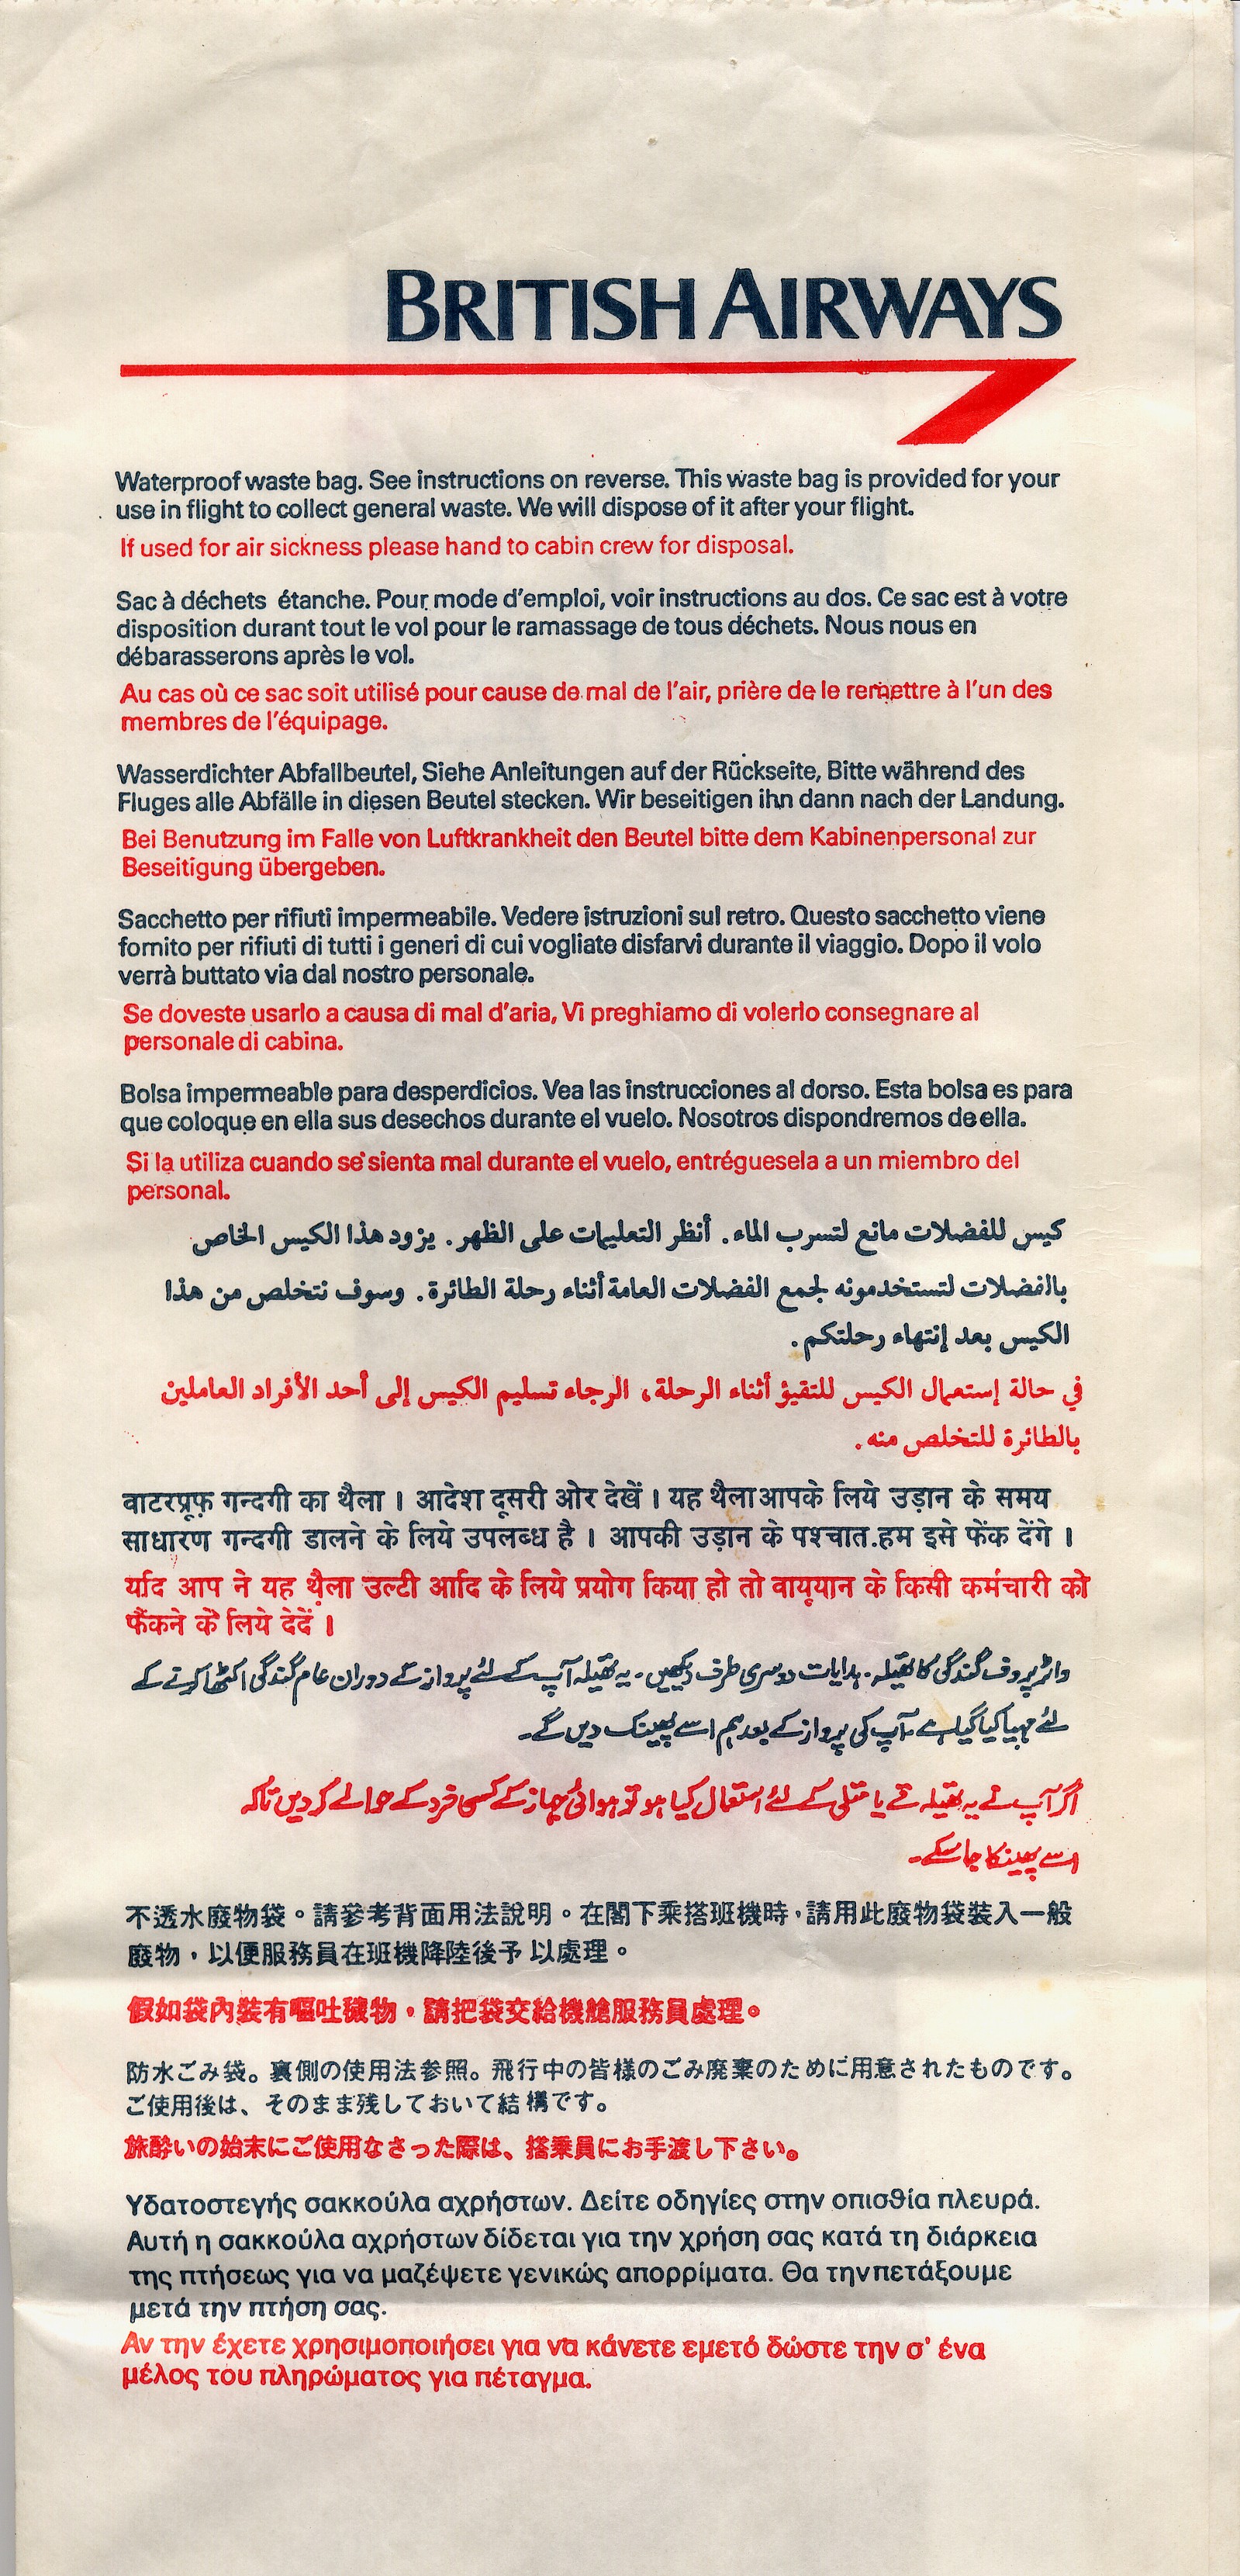 BRITISH AIRWAYS
Waterproof waste bag. See instructions on reverse. This waste bag is provided for your
use in flight to collect general waste. We will dispose of it after your flight.
If used for air sickness please hand to cabin crew for disposal.
Sac à déchets étanche. Pour mode d'emploi, voir instructions au dos. Ce sac est à votre
disposition durant tout le vol pour le ramassage de tous déchets. Nous nous en
débarasserons après le vol.
Au cas où ce sac soit utilisé pour cause de mal de l'air, prière de le remettre à l'un des
membres de l'équipage.
Wasserdichter Abfallbeutel, Siehe Anleitungen auf der Rückseite, Bitte während des
Fluges alle Abfälle in diesen Beutel stecken. Wir beseitigen ihn dann nach der Landung.
Bei Benutzung im Falle von Luftkrankheit den Beutel bitte dem Kabinenpersonal zur
Beseitigung übergeben.
Sacchetto per rifiuti impermeabile. Vedere istruzioni sul retro. Questo sacchetto viene
fornito per rifiuti di tutti i generi di cui vogliate disfarvi durante il viaggio. Dopo il volo
verrà buttato via dal nostro personale.
Se doveste usarlo a causa di mal d'aria, Vi preghiamo di volerlo consegnare al
personale di cabina.
Bolsa impermeable para desperdicios. Vea las instrucciones al dorso. Esta bolsa es para
que coloque en ella sus desechos durante el vuelo. Nosotros dispondremos de ella.
Si la utiliza cuando se sienta mal durante el vuelo, entréguesela a un miembro del
personal.
كيس للفضلات مانع لتسرب الماء. أنظر التعليمات على الظهر. يزود هذا الكيس الخاص
بالفضلات لتستخدمونه لجمع الفضلات العامة أثناء رحلة الطائرة. وسوف نتخلص من هذا
الكيس بعد إنتهاء رحلتكم.
في حالة إستعمال الكيس للتقيؤ أثناء الرحلة، الرجاء تسليم الكيس إلى أحد الأفراد العاملين
بالطائرة للتخلص منه.
वाटरप्रूफ़ गन्दगी का थैला । आदेश दूसरी ओर देखें । यह थैला आपके लिये उड़ान के समय
साधारण गन्दगी डालने के लिये उपलब्ध है । आपकी उड़ान के पश्चात.हम इसे फेंक देंगे ।
यदि आप ने यह थैला उल्टी आदि के लिये प्रयोग किया हो तो वायुयान के किसी कर्मचारी को
फेंकने के लिये देदें ।
واٹرپروف گندگی کا تھیلہ۔ ہدایات دوسری طرف دیکھیں۔ یہ تھیلہ آپ کے لئے پرواز کے دوران عام گندگی اکٹھا کرنے کے
لئے مہیا کیا گیا ہے۔ آپ کی پرواز کے بعد ہم اسے پھینک دیں گے۔
اگر آپ نے یہ تھیلہ قے یا متلی کے لئے استعمال کیا ہو تو ہوائی جہاز کے کسی فرد کے حوالے کر دیں تاکہ
اسے پھینکا جا سکے۔
不透水廢物袋。請參考背面用法說明。在閣下乘搭班機時，請用此廢物袋裝入一般
廢物，以便服務員在班機降陸後予以處理。
假如袋內裝有嘔吐穢物，請把袋交給機艙服務員處理。
防水ごみ袋。裏側の使用法参照。飛行中の皆様のごみ廃棄のために用意されたものです。
ご使用後は、そのまま残しておいて結構です。
旅酔いの始末にご使用なさった際は、搭乗員にお手渡し下さい。
Υδατοστεγής σακκούλα αχρήστων. Δείτε οδηγίες στην οπισθία πλευρά.
Αυτή η σακκούλα αχρήστων δίδεται για την χρήση σας κατά τη διάρκεια
της πτήσεως για να μαζέψετε γενικώς απορρίματα. Θα την πετάξουμε
μετά την πτήση σας.
Αν την έχετε χρησιμοποιήσει για να κάνετε εμετό δώστε την σ' ένα
μέλος του πληρώματος για πέταγμα.